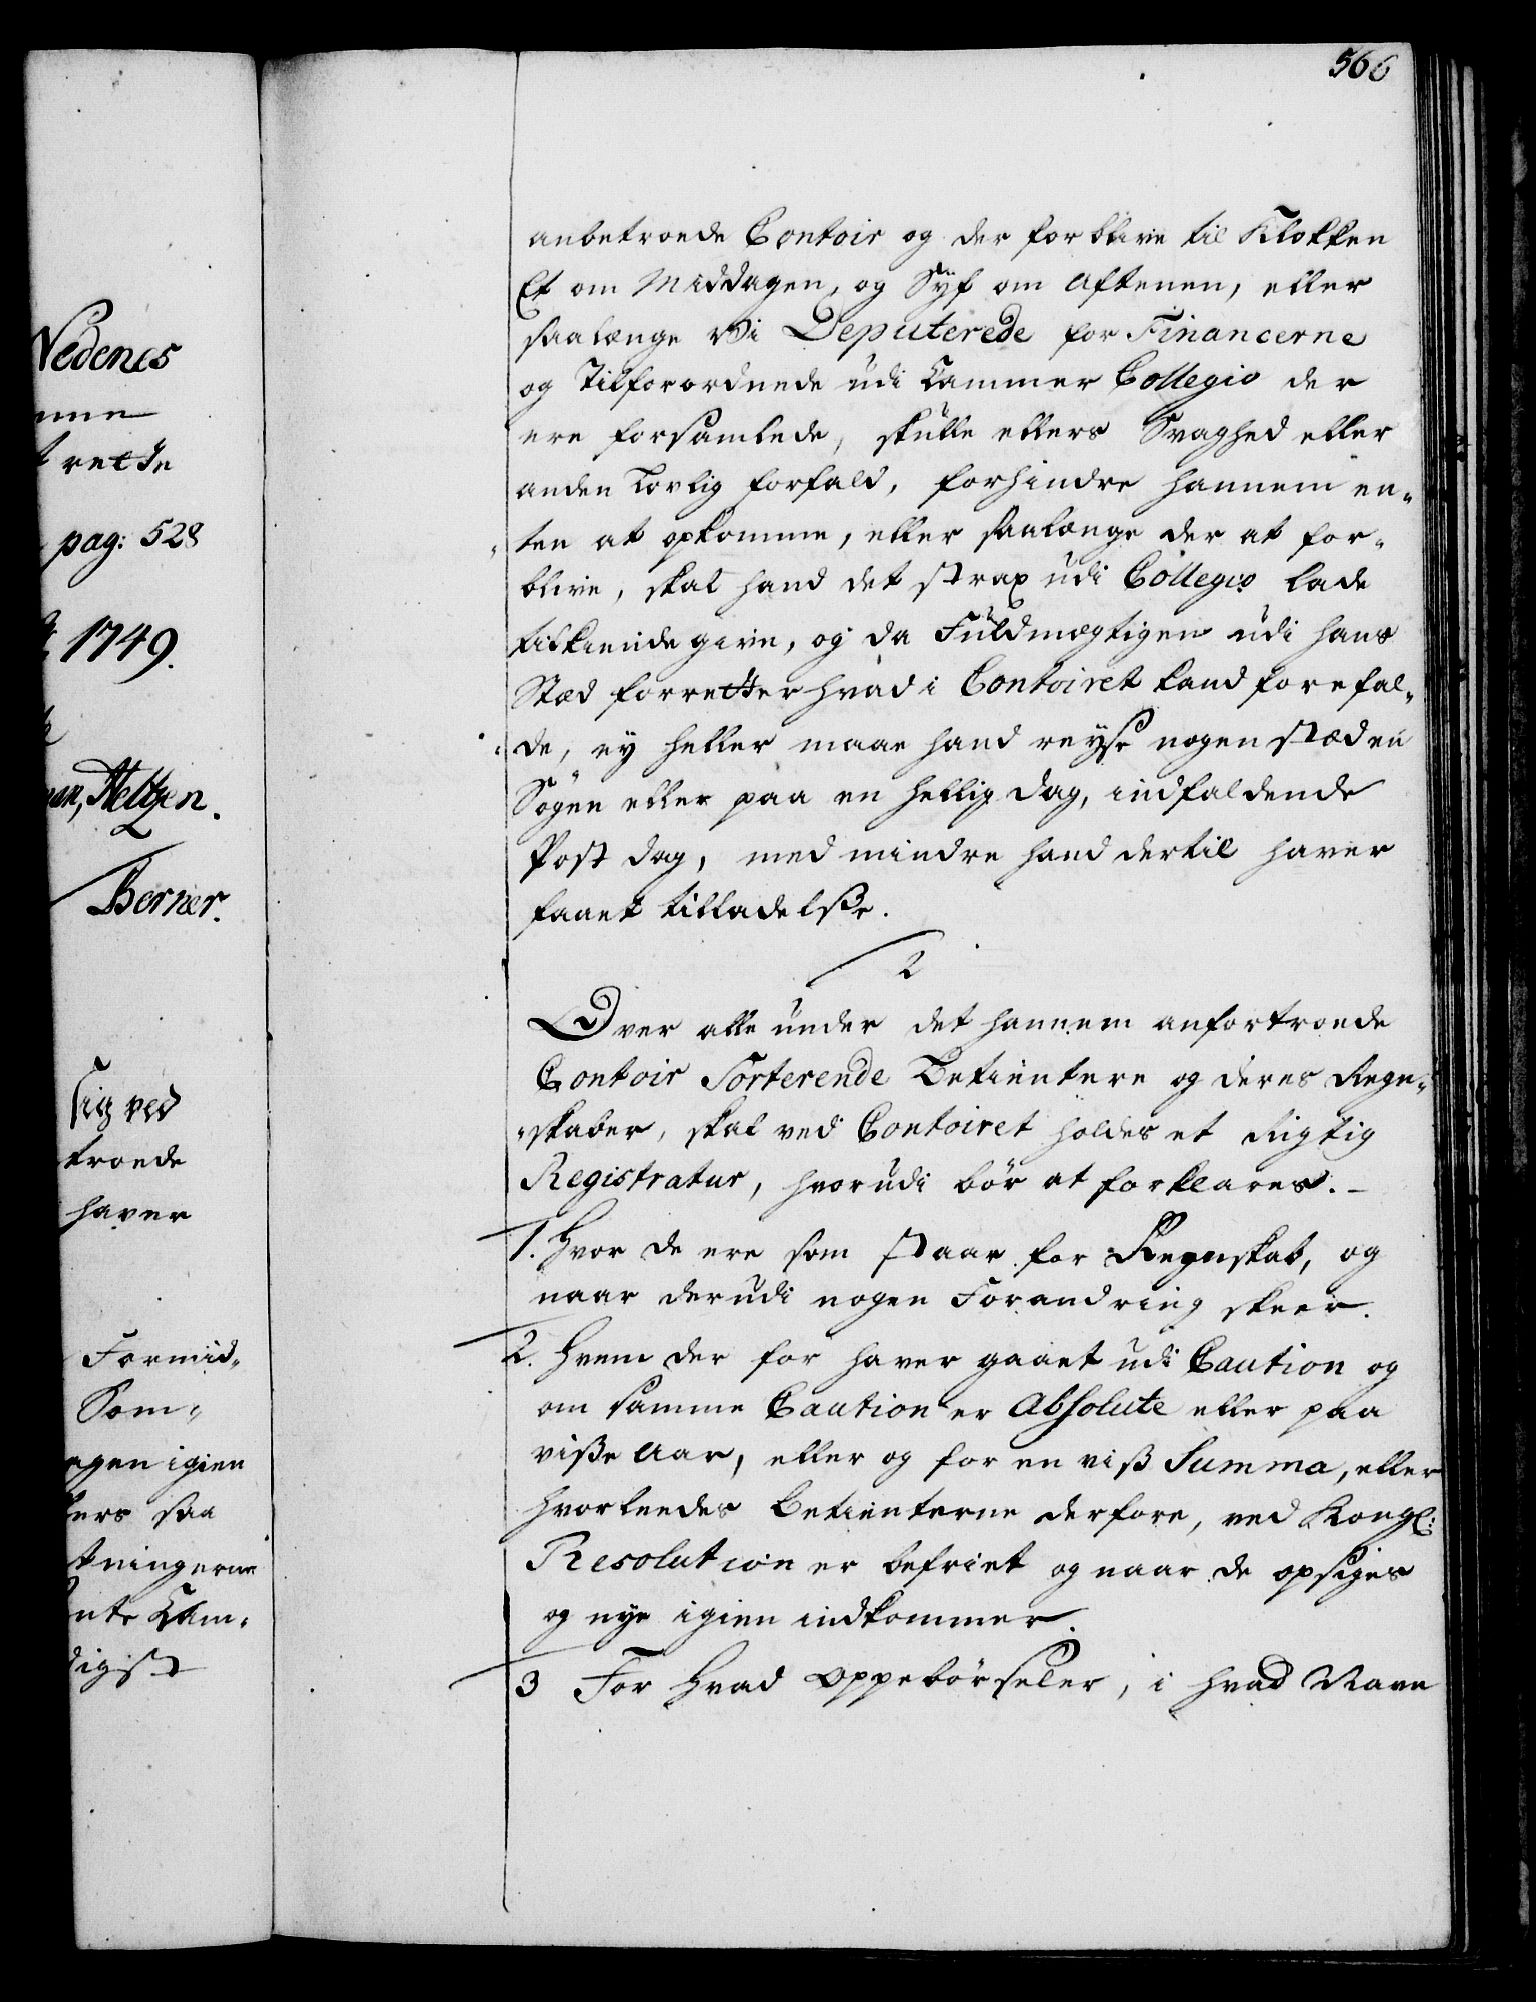 566
anbetroede Contoir og der forblive til Klokken
Et om Middagen, og Syf om Aftenen, eller
saalænge Vi Deputerede for Financerne
og Tilforordnede udi Cammer Collegio der
ere forsamlede, skulle ellers Svaghed eller
anden Lovlig forfald, forhindre hannem en„
„ten at opkomme, eller saalænge der at for„
blive, skal hand det strax udi Collegio lade
tilkiende give, og da Fuldmægtigen udi hans
Stæd forretter hvad i Contoiret kand forefal„
„de, ey heller maae hand reyse nogen stæd en
Søgne eller paa en hellig dag, indfaldende
Post dag, med mindre hand dertil haver
faaet tilladelße.
2
Over alle under det hannem anfortroede
Contoir Sorterende Betientere og deres Regn„
„skaber, skal ved Contoiret holdes et Rigtig
Registratur, hvorudi bör at forklares.
1. Hvor de ere som staar for Regnskab, og
naar derudi nogen Forandring skeer.
2. Hvem der for haver gaaet udi Caution og
om samme Caution er Absolute eller paa
viße Aar, eller og for en viß Summa, eller
hvorleedes Betienterne derfore, ved Kongl:
Resolution er befriet og naar de opsiges
og nye igien indkommer.
3 For hvad Oppebörseler, i hvad Navn
Nedenes
rette
pag: 528
1749.
Heltzen.
Berner.
sig ved
troede
haver
Formid„
Som„
igien
saa
tningerne
Cam„
digst